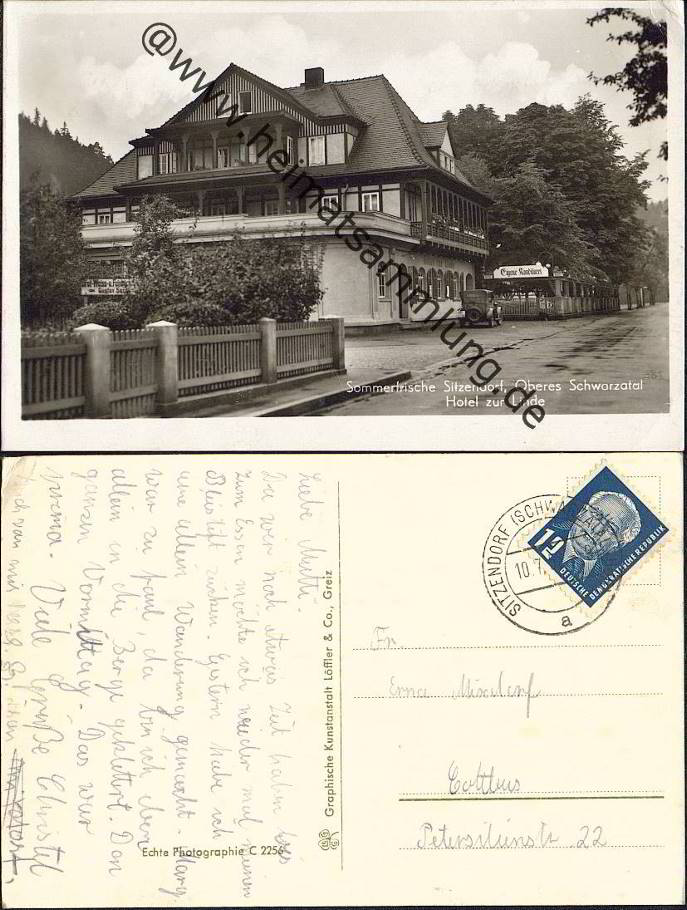 @www.heimatsammlung.de
Eigene Konditorei
Sommerfrische Sitzendorf, Oberes Schwarzatal
Hotel zur Linde
Liebe Mutti.
Da wir noch etwas Zeit haben bis
zum Essen möchte ich wieder mal meinen
Bleistift zücken. Gestern habe ich
eine allein Wanderung gemacht. Marg.
war zu faul, da bin ich eben
allein in die Berge geklettert. Den
ganzen Vormittag. Das war
prima. Viele Grüße Christel
Auch von mir
Echte Photographie C 2256
Graphische Kunstanstalt Löffler & Co., Greiz
SITZENDORF (SCHWARZATAL)
10.7.
a
12
DEUTSCHE DEMOKRATISCHE REPUBLIK
Fr.
Erna
Cottbus
Petersilienstr. 22